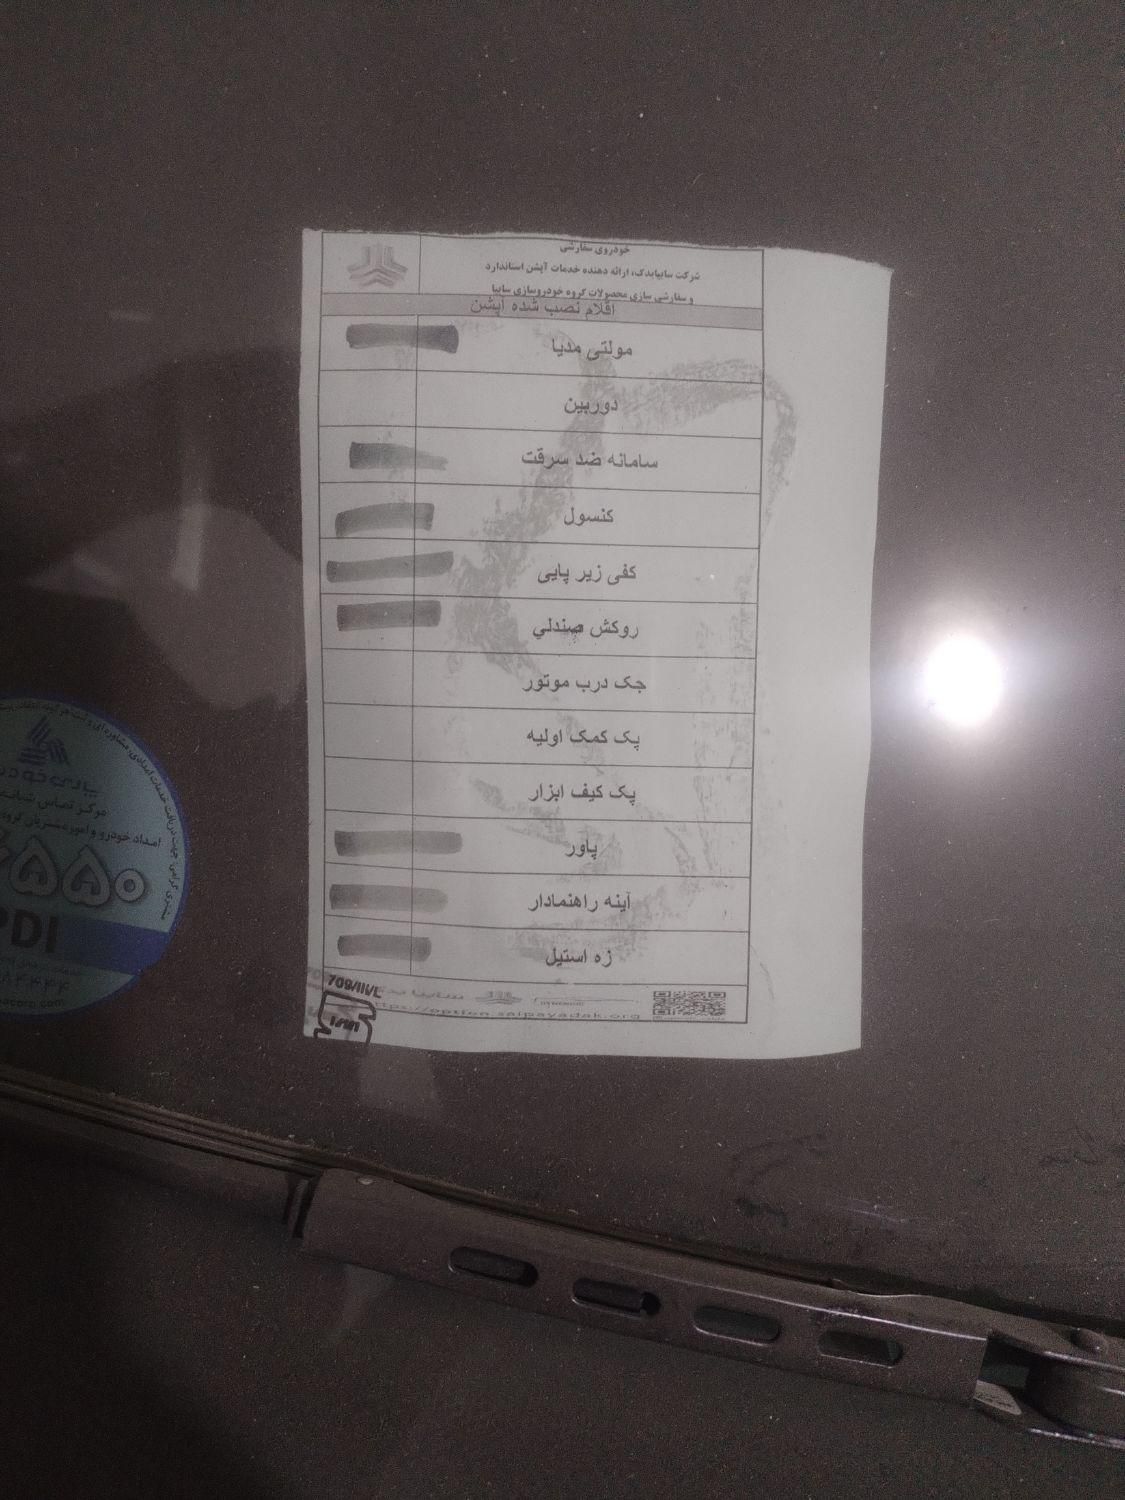 خودروی سفارشی
شرکت سایپایدک، ارائه دهنده خدمات آپشن استاندارد
و سفارشی سازی محصولات گروه خودروسازی سایپا
اقلام نصب شده آپشن
مولتی مدیا
دوربین
سامانه ضد سرقت
کنسول
کفی زیر پایی
روکش صندلي
جک درب موتور
پک کمک اولیه
پک کیف ابزار
پاور
آینه راهنمادار
زه استیل
https://option.saipayadak.org
مرکز تماس
امداد خودرو و امور مشتریان
۵۵۰
PDI